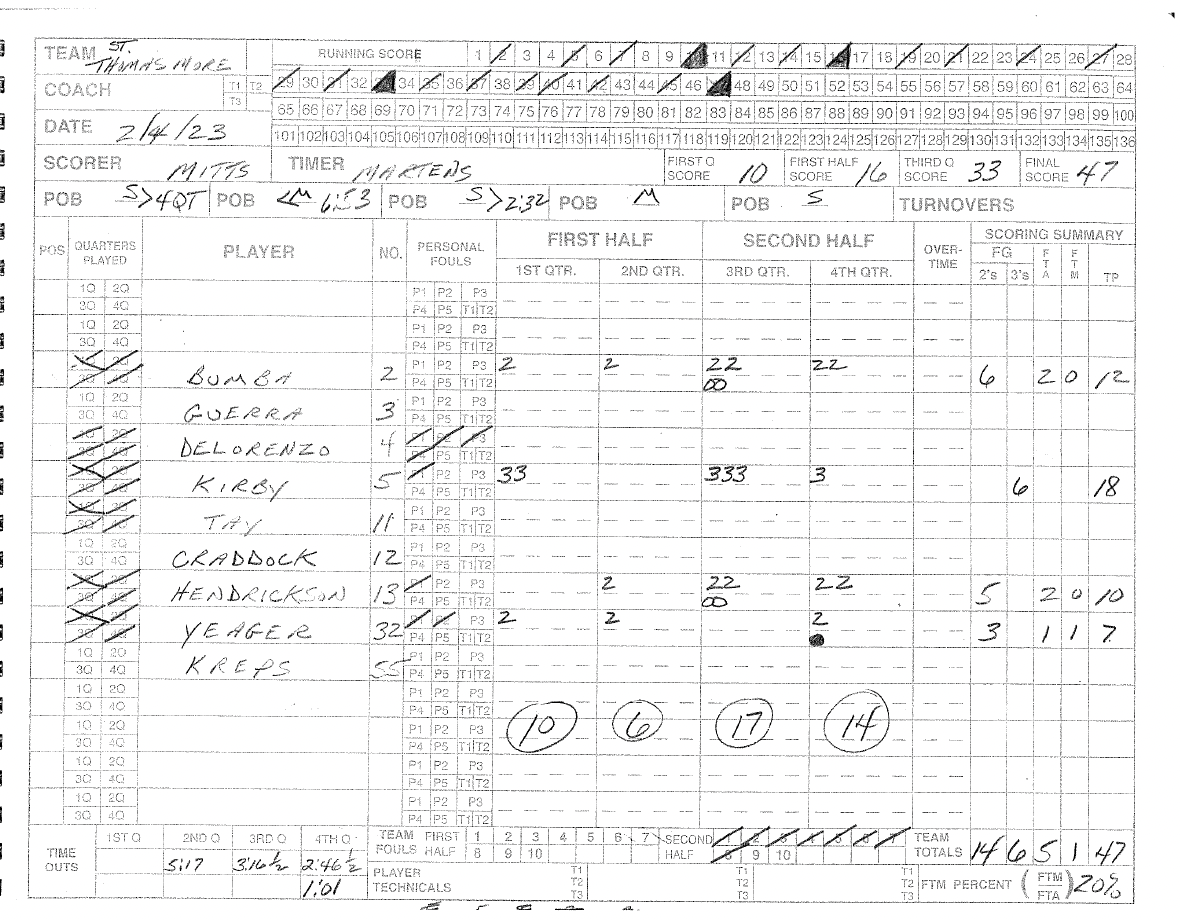 TEAM ST. THOMAS MORE RUNNING SCORE 1 2 3 4 5 6 7 8 9 10 11 12 13 14 15 16 17 18 19 20 21 22 23 24 25 26 27 28
COACH T1 T2 T3 29 30 31 32 33 34 35 36 37 38 39 40 41 42 43 44 45 46 47 48 49 50 51 52 53 54 55 56 57 58 59 60 61 62 63 64
65 66 67 68 69 70 71 72 73 74 75 76 77 78 79 80 81 82 83 84 85 86 87 88 89 90 91 92 93 94 95 96 97 98 99 100
DATE 2/4/23 101 102 103 104 105 106 107 108 109 110 111 112 113 114 115 116 117 118 119 120 121 122 123 124 125 126 127 128 129 130 131 132 133 134 135 136
SCORER MITTS TIMER MARTENS FIRST Q SCORE 10 FIRST HALF SCORE 16 THIRD Q SCORE 33 FINAL SCORE 47
POB S>4QT POB <M 6:53 POB S>2:32 POB M POB S TURNOVERS
POS QUARTERS PLAYED PLAYER NO. PERSONAL FOULS FIRST HALF SECOND HALF OVER-TIME SCORING SUMMARY
1ST QTR. 2ND QTR. 3RD QTR. 4TH QTR. FG 2's 3's FTA FTM TP
1Q 2Q P1 P2 P3
3Q 4Q P4 P5 T1 T2
1Q 2Q P1 P2 P3
3Q 4Q P4 P5 T1 T2
1Q 2Q P1 P2 P3 2 2 22 22
3Q 4Q BUMBA 2 P4 P5 T1 T2 00 6 2 0 12
1Q 2Q P1 P2 P3
3Q 4Q GUERRA 3 P4 P5 T1 T2
1Q 2Q P1 P2 P3
3Q 4Q DELORENZO 4 P4 P5 T1 T2
1Q 2Q P1 P2 P3 33 333 3
3Q 4Q KIRBY 5 P4 P5 T1 T2 6 18
1Q 2Q P1 P2 P3
3Q 4Q TAY 11 P4 P5 T1 T2
1Q 2Q P1 P2 P3
3Q 4Q CRADDOCK 12 P4 P5 T1 T2
1Q 2Q P1 P2 P3 2 22 22
3Q 4Q HENDRICKSON 13 P4 P5 T1 T2 00 5 2 0 10
1Q 2Q P1 P2 P3 2 2 2
3Q 4Q YEAGER 32 P4 P5 T1 T2 3 1 1 7
1Q 2Q P1 P2 P3
3Q 4Q KREPS 55 P4 P5 T1 T2
1Q 2Q P1 P2 P3
3Q 4Q P4 P5 T1 T2
1Q 2Q P1 P2 P3 10 6 17 14
3Q 4Q P4 P5 T1 T2
1Q 2Q P1 P2 P3
3Q 4Q P4 P5 T1 T2
1Q 2Q P1 P2 P3
3Q 4Q P4 P5 T1 T2
TIME OUTS 1ST Q 2ND Q 3RD Q 4TH Q TEAM FOULS FIRST HALF 1 2 3 4 5 6 7 SECOND HALF 1 2 3 4 5 6 7 TEAM TOTALS 14 6 5 1 47
5:17 3:16 ½ 2:46 ½ 8 9 10 8 9 10
1:01 PLAYER TECHNICALS T1 T2 T3 T1 T2 T3 T1 T2 T3 FTM PERCENT (FTM FTA) 20%